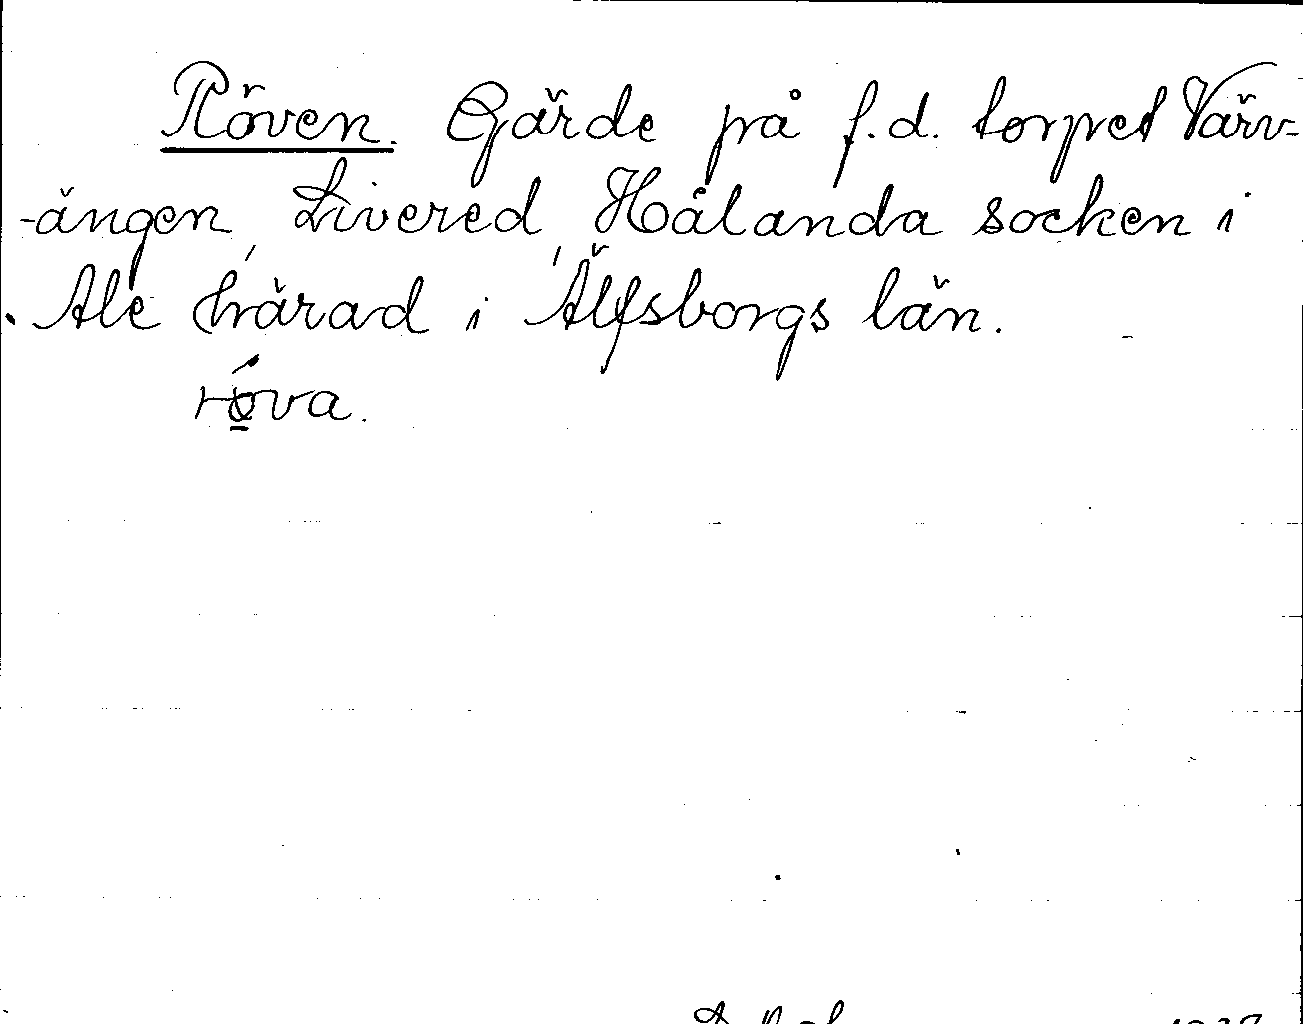 Röven. Gärde på f.d. torpet Värv-
-ängen, Livered, Hålanda socken i
Ale härad i Älfsborgs län.
rǿ̱va.